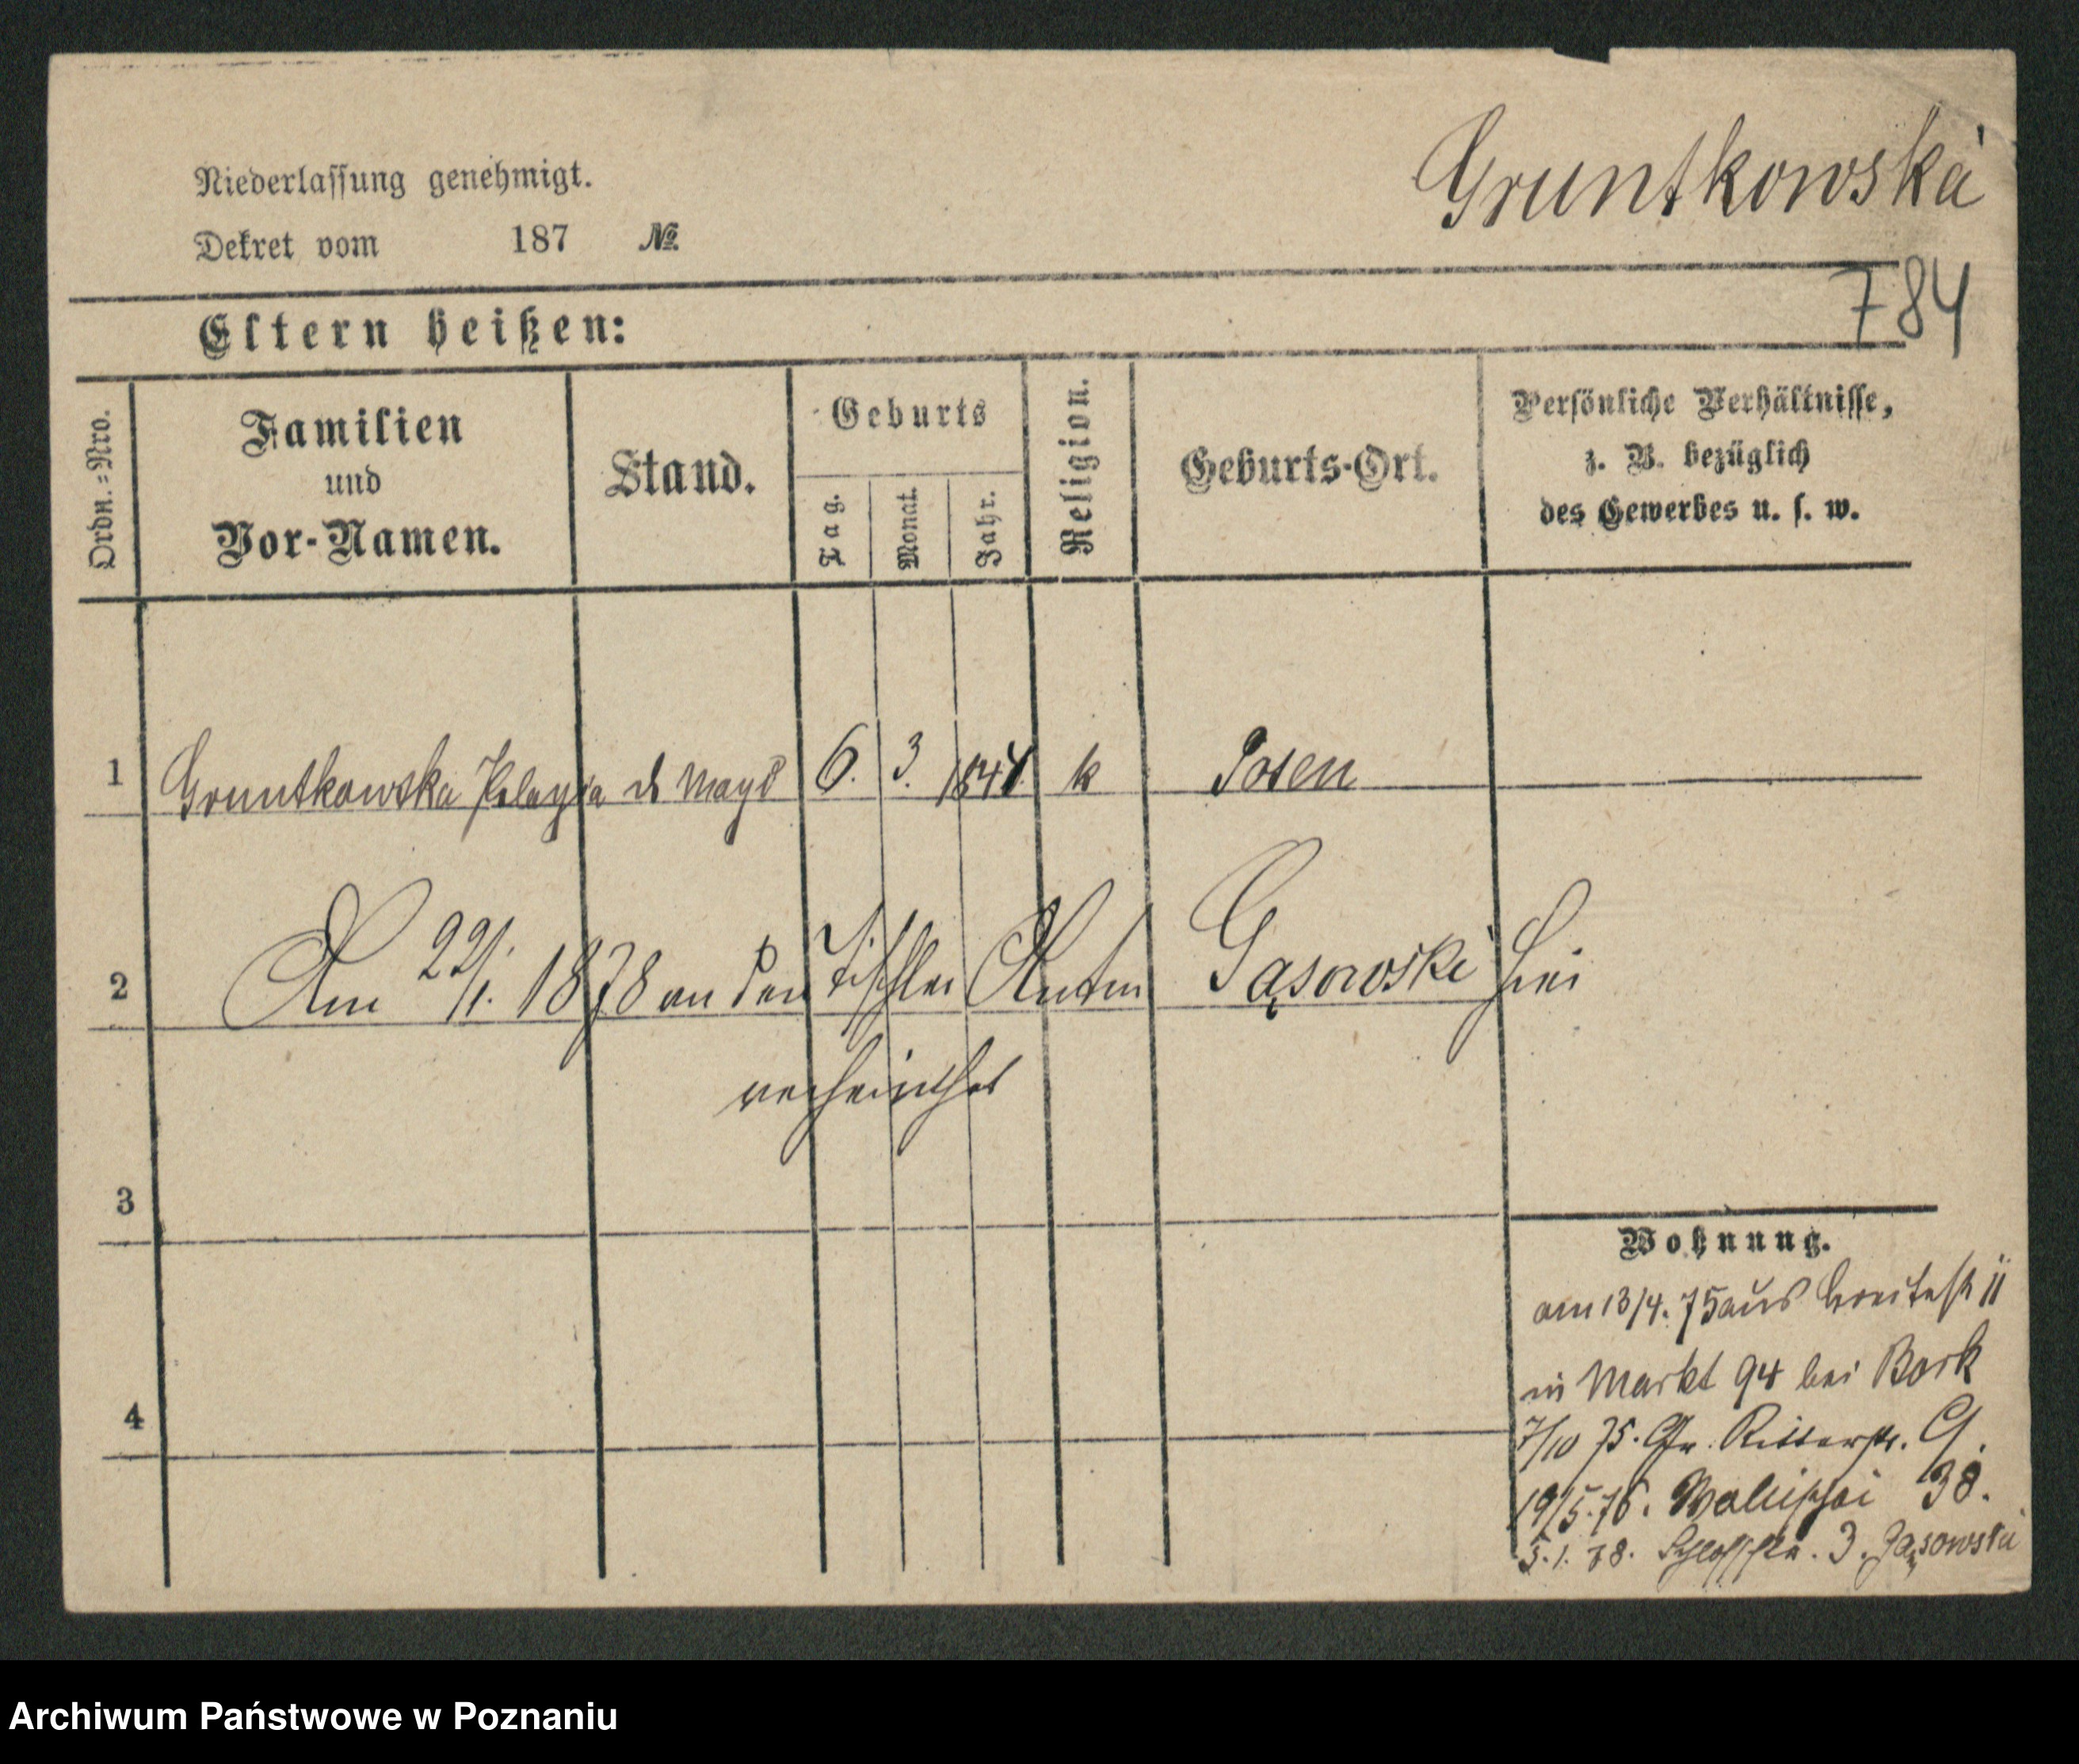 Gruntkowska
Niederlassung genehmigt.
Dekret vom 187 №
784
Eltern heißen:
Ordn.=Nro.
Familien
und
Vor-Namen.
Stand.
Geburts
Tag.
Monat.
Jahr.
Religion.
Geburts-Ort.
Persönliche Verhältnisse,
z. B. bezüglich
des Gewerbes u. s. w.
1 Gruntkowska Pelagia d Magd 6. 3. k Posen
2 Am 22/1. 1878 an den Tischler Anton Gąsowski hier
verheirathet
3
Wohnung.
am 13/4. 75 aus Breitestr 11
in Markt 94 bei Bork
4
7/10 75. Gr. Ritterstr. 9.
19/5. 76. Wallischei 38.
5. 1. 78. Schloßstr. 3. Gąsowski
Archiwum Państwowe w Poznaniu